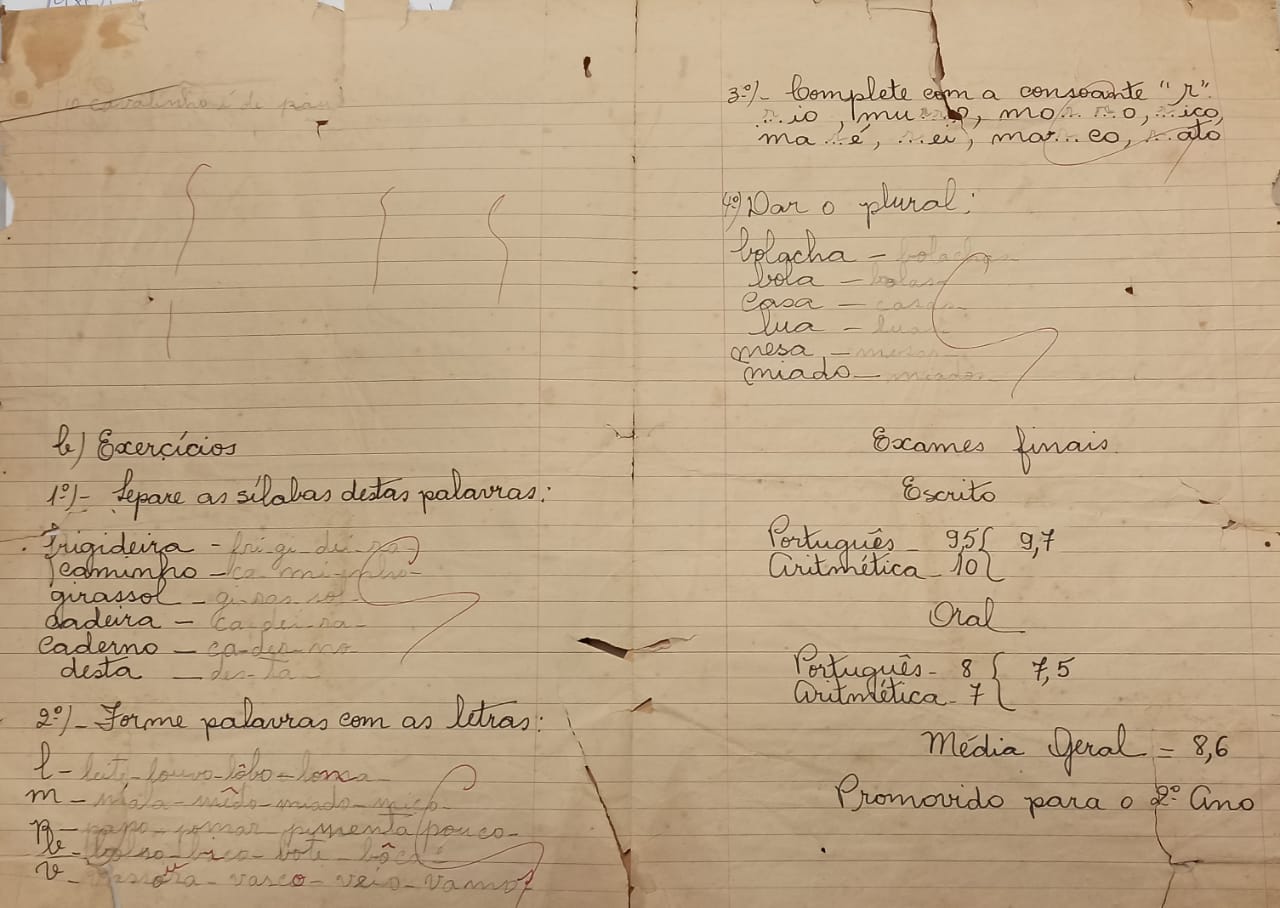 o cavalinho é de pau
b) Exercícios
1º)- Separe as sílabas destas palavras:
frigideira - fri-gi-dei-ra-
caminho - ca-mi-nho-
girassol - gi-ras-sol-
cadeira - ca-dei-ra-
caderno - ca-der-no-
desta - des-ta-
2º)- Forme palavras com as letras:
l - leite-louvo-lôbo-lousa
m - mala-mêdo-miado-mico-
p - papo-pomar pimenta pouco-
b - bolso-bico-bote-bôca
v - vassoura-vasco-veio-vamos
3º)- Complete com a consoante "r".
r io, mu rr o, mo r r o, r ico,
ma r é, r ei, mar r eo, r ato
4º) Dar o plural:
bolacha - bolachas
bola - bolas
casa - casas
lua - luas
mesa - mesas
miado - miados
Exames finais
Escrito
Português - 9,5 { 9,7
Aritmética - 10
Oral
Português - 8 { 7,5
Aritmética - 7
Média Geral = 8,6
Promovido para o 2º Ano